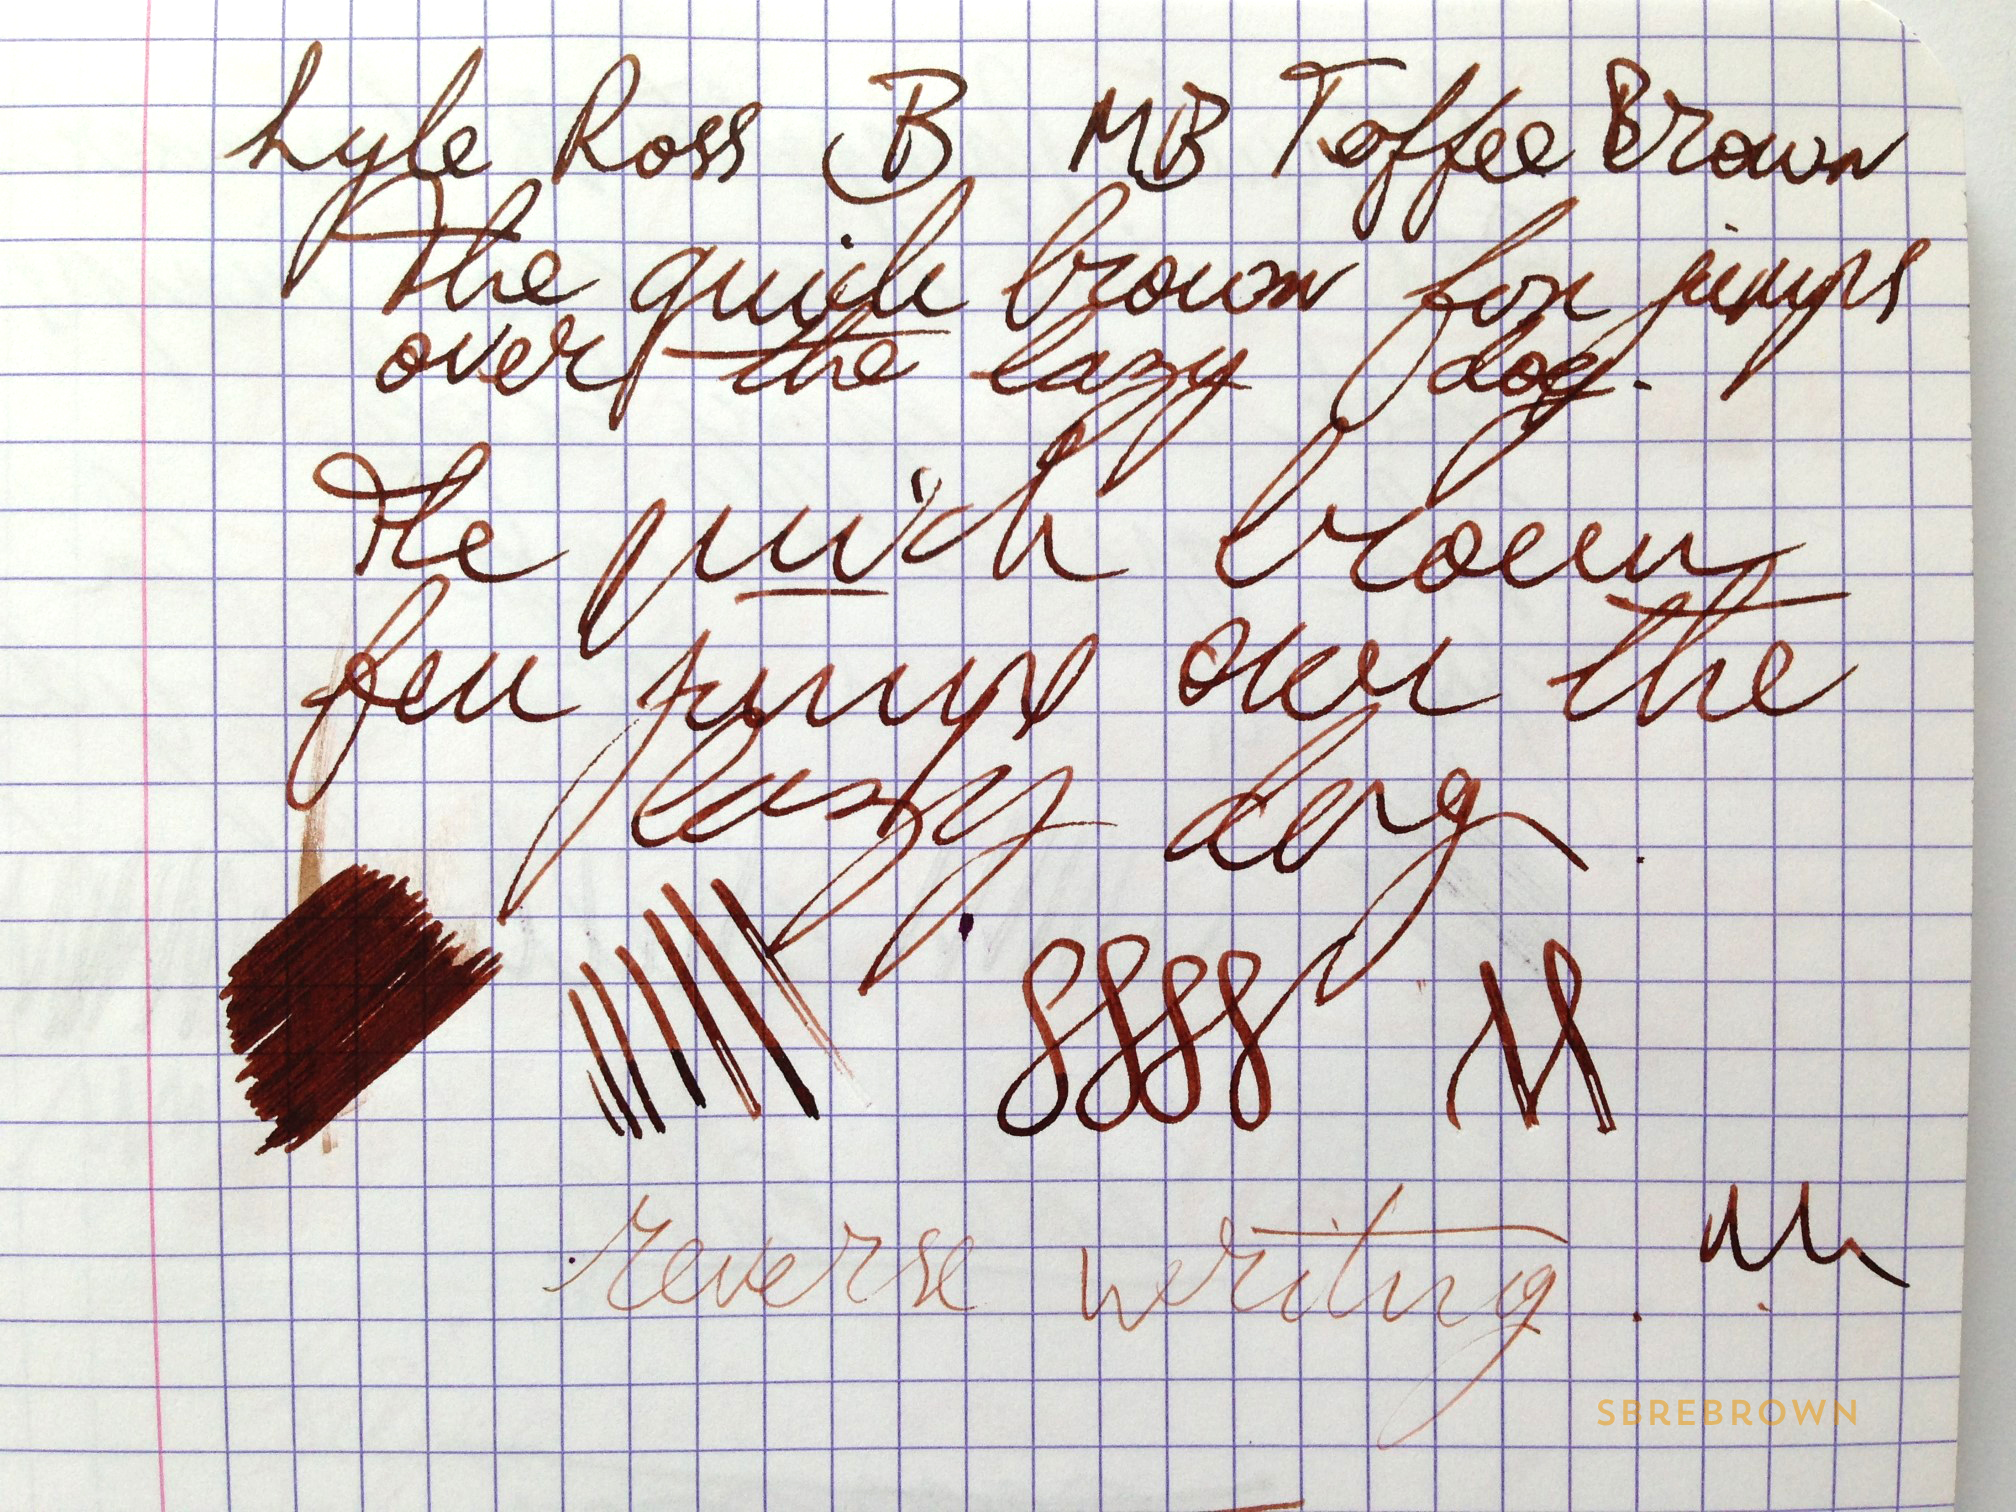 Lyle Ross B MB Toffee Brown
The quick brown fox jumps
over the lazy dog.
The quick brown
fox jumps over the
lazy dog.
reverse writing.
SBREBROWN